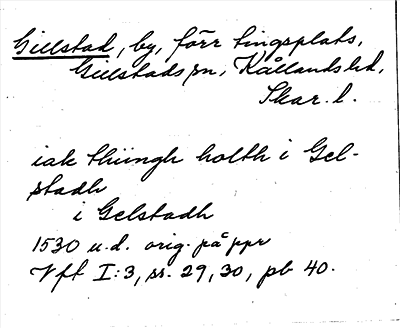 Gillstad, by, förr tingsplats,
Gillstads sn, Kållands hd,
Skar. l.
iak thiingh holth i Gel-
stadh
i Gelstadh
1530 u.d. orig. på ppr
Vft I:3, ss. 29, 30, pb 40.